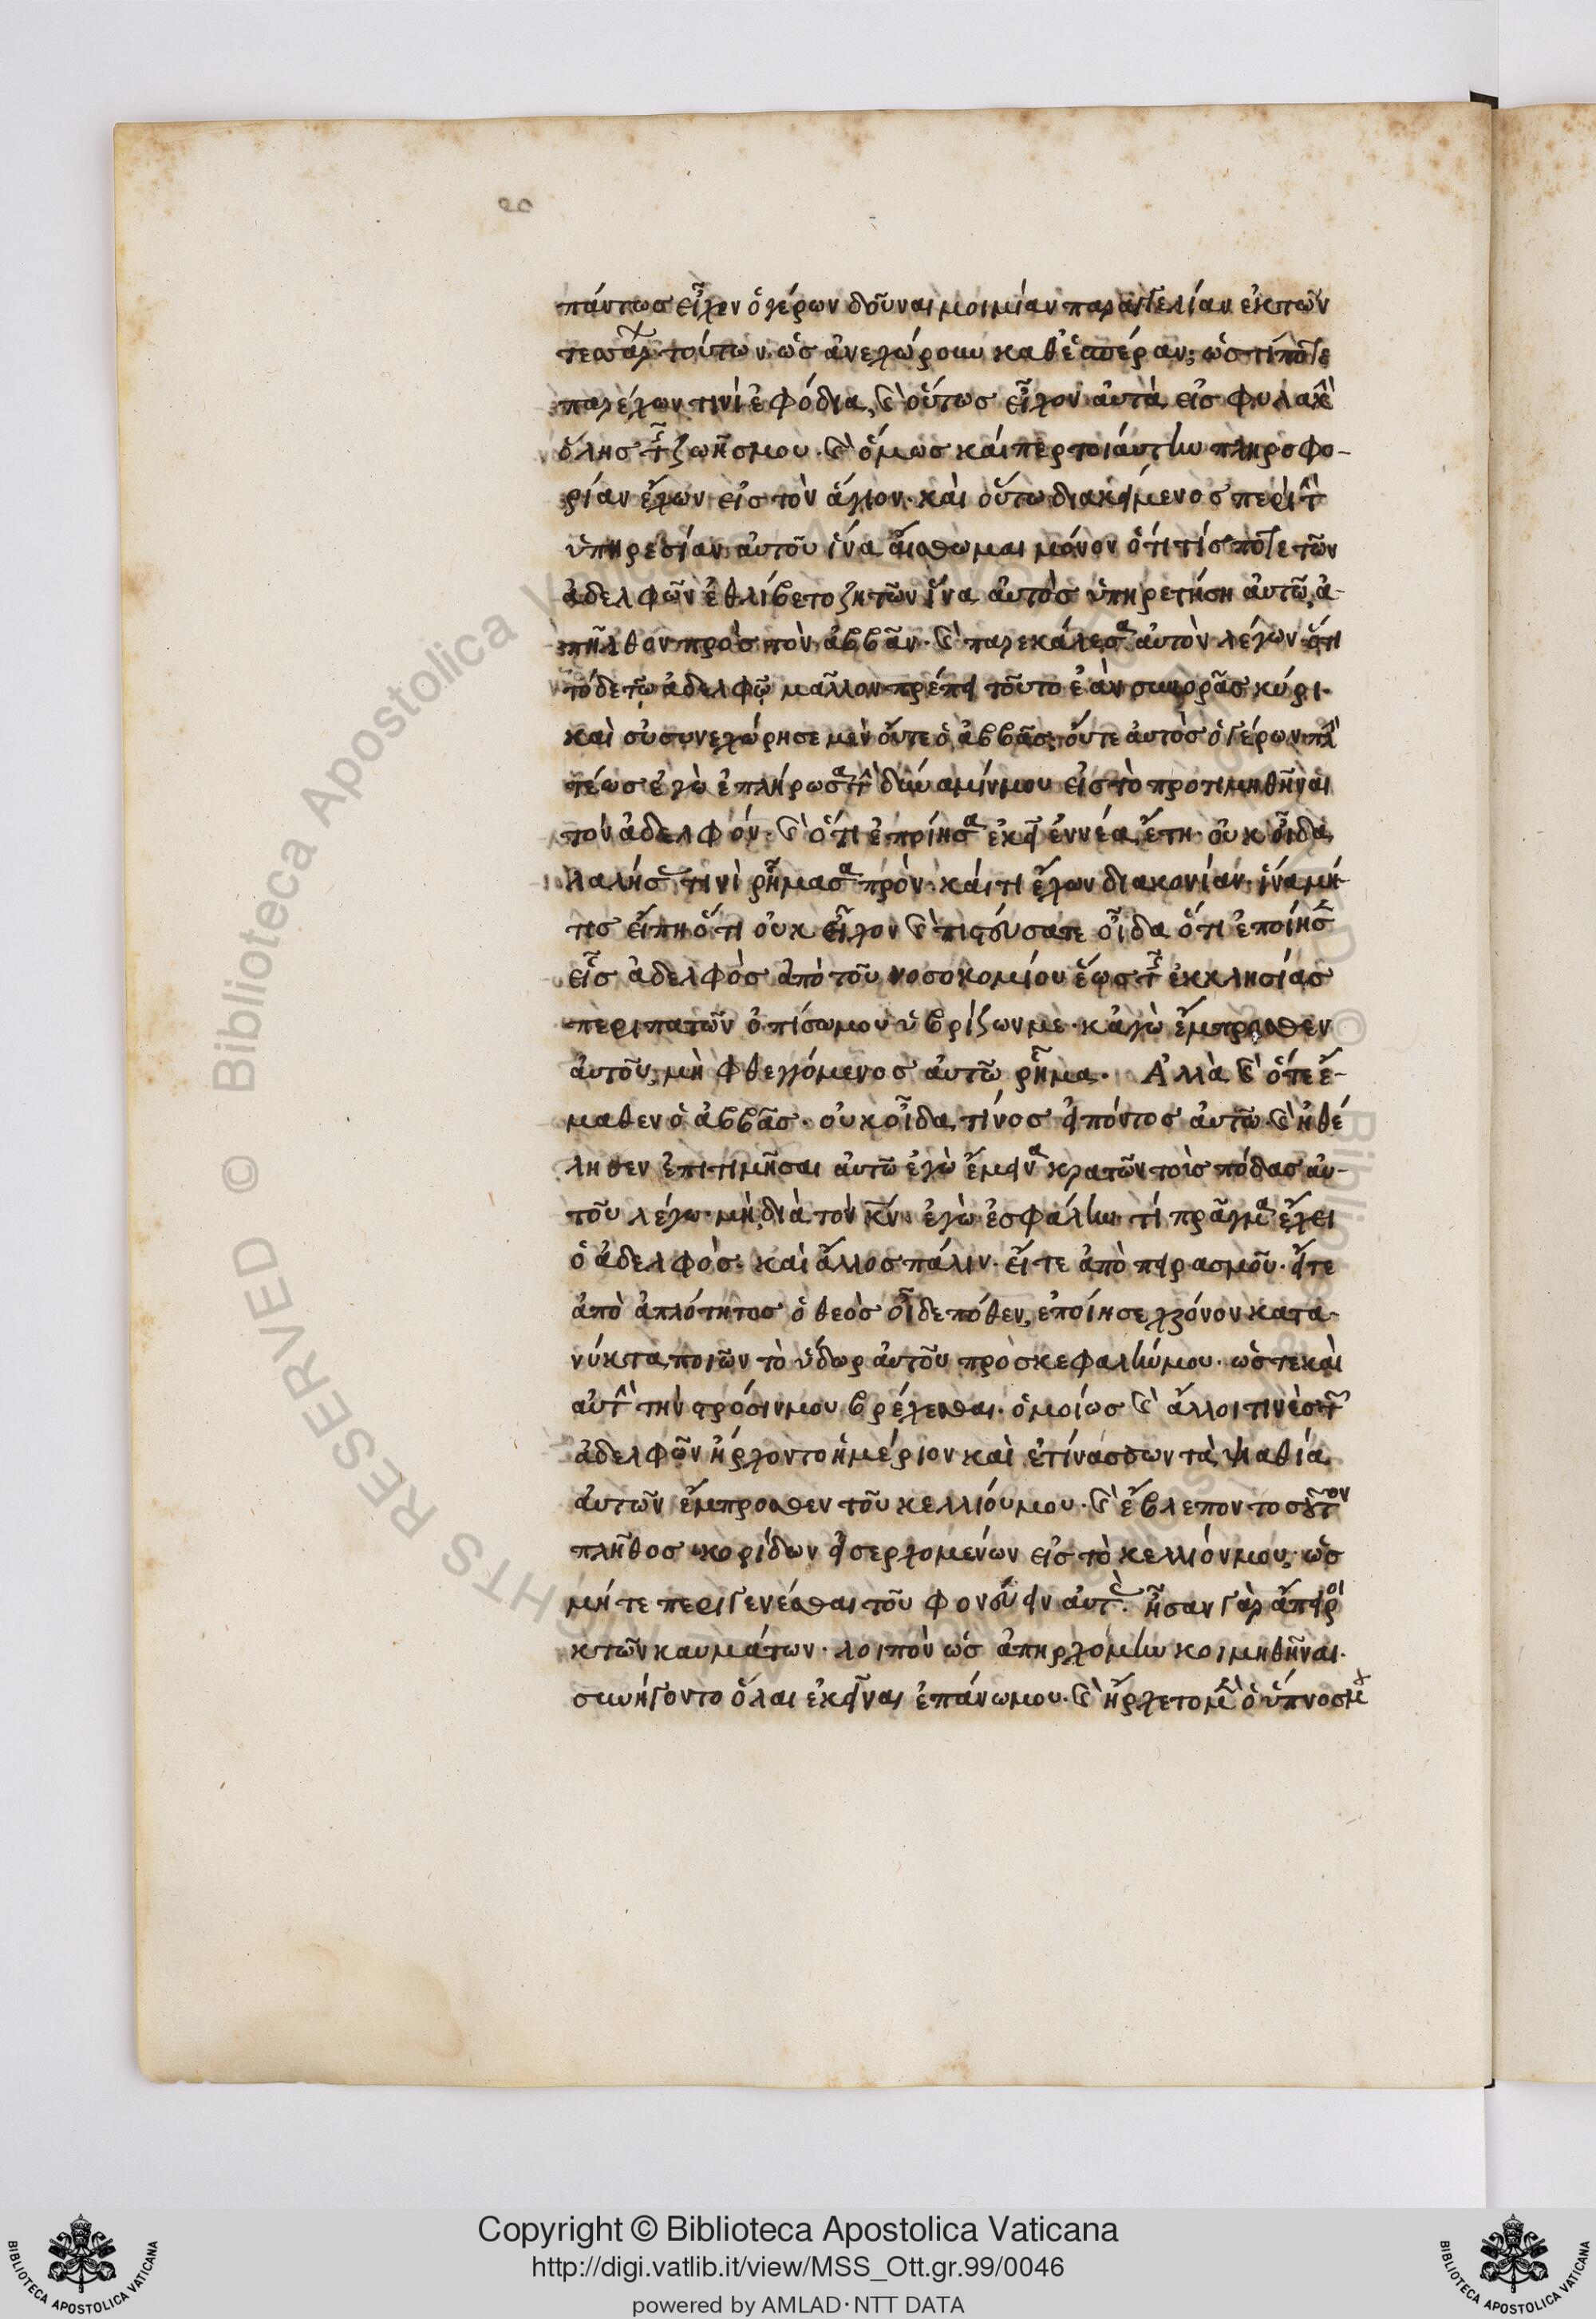 πάντως εἶχεν ὁ γέρων δοῦναι μοι μίαν παραγγελίαν ἐκ τῶν
τεσσάρ τούτων. ὡς ἀνεχώρουν καθ ἑσπέραν; ὥς τί ποτε
παρέχων τινὶ ἐφόδια, καὶ οὕτως εἶχον αὐτὰ εἰς φυλακὴν
ὅλης τῆς ζωῆς μου. καὶ ὅμως καίπερ τοιαύτην πληροφο-
ρίαν ἔχων εἰς τὸν ἅγιον. καὶ οὕτω διακείμενος περὶ τὴν
ὑπηρεσίαν αὐτοῦ ἵνα αἴσθωμαι μόνον ὅτι τίς ποτε τῶν
ἀδελφῶν ἐθλίβετο ζητῶν ἵνα αὐτὸς ὑπηρετήση αὐτῶ, ἀ-
πῆλθον πρὸς τὸν ἀββᾶν. καὶ παρεκάλεσα αὐτὸν λέγων ὅτι
τόδε τῷ ἀδελφῷ μᾶλλον πρέπει τοῦτο ἐὰν συνορᾶς κύρι.
καὶ οὐ συνεχώρησε μὲν οὔτε ὁ ἀββᾶς, οὔτε αὐτὸς ὁ γέρων πλὴν
τέως ἐγὼ ἐπλήρωσα τὴν δύναμίν μου εἰς τὸ προτιμηθῆναι
τὸν ἀδελφόν. καὶ ὅτι ἐποίησα ἐκεῖ ἐννέα ἔτη. οὐκ οἶδα
λαλήσας τινὶ ῥῆμα σαπρόν. καίτι ἔχων διακονίαν. ἵνα μή
τις εἴπη ὅτι οὐκ εἶχον καὶ πιστεύσατε οἶδα ὅτι ἐποίησεν
εἷς ἀδελφὸς ἀπὸ τοῦ νοσοκομίου ἕως τῆς ἐκκλησίας
περιπατῶν ὀπίσω μου ὑβρίζων με. κἀγὼ ἔμπροσθεν
αὐτοῦ, μὴ φθεγγόμενος αὐτῶ ῥῆμα. Ἀλλὰ καὶ ὅτε ἔ-
μαθεν ὁ ἀββᾶς. οὐκ οἶδα τίνος εἰπόντος αὐτῶ. καὶ ἠθέ
ληθεν ἐπιτιμῆσαι αὐτῶ ἐγὼ ἔμεινα κρατῶν τοὺς πόδας αὐ-
τοῦ λέγω. μὴ διὰ τὸν κν. ἐγὼ ἐσφάλην. τί πρᾶγμα ἔχει
ὁ ἀδελφὸς. καὶ ἄλλος πάλιν. εἴτε ἀπὸ πειρασμοῦ. εἴτε
ἀπὸ ἁπλότητος ὁ θεὸς οἶδε πόθεν, ἐποίησε χρόνον κατα-
νύκτα ποιῶν τὸ ὕδωρ αὐτοῦ πρὸς κεφαλήν μου. ὥστε καὶ
αὐτὴν τὴν στρῶσιν μου βρέχεσθαι. ὁμοίως καὶ ἄλλοι τινὲς τῶν
ἀδελφῶν ἤρχοντο ἡμέριον καὶ ἐτίνασσων τὰ ψιαθία
αὐτῶν ἔμπροσθεν τοῦ κελλίου μου. καὶ ἔβλεπον τοσοῦτον
πλῆθος κορίδων εἰσερχομένων εἰς τὸ κελλίόν μου, ὡς
μήτε περιγενέσθαι τοῦ φονεύειν αὐτὰς. ἦσαν γὰρ ἄπειροι
κ τῶν καυμάτων. λοιπὸν ὡς ἀπηρχόμην κοιμηθῆναι.
συνήγοντο ὅλαι ἐκεῖναι ἐπάνω μου. καὶ ἤρχετο μὲν ὁ ὕπνος με
Copyright © Biblioteca Apostolica Vaticana
http://digi.vatlib.it/view/MSS_Ott.gr.99/0046
powered by AMLAD · NTT DATA
BIBLIOTECA APOSTOLICA VATICANA
BIBLIOTECA APOSTOLICA VATICANA